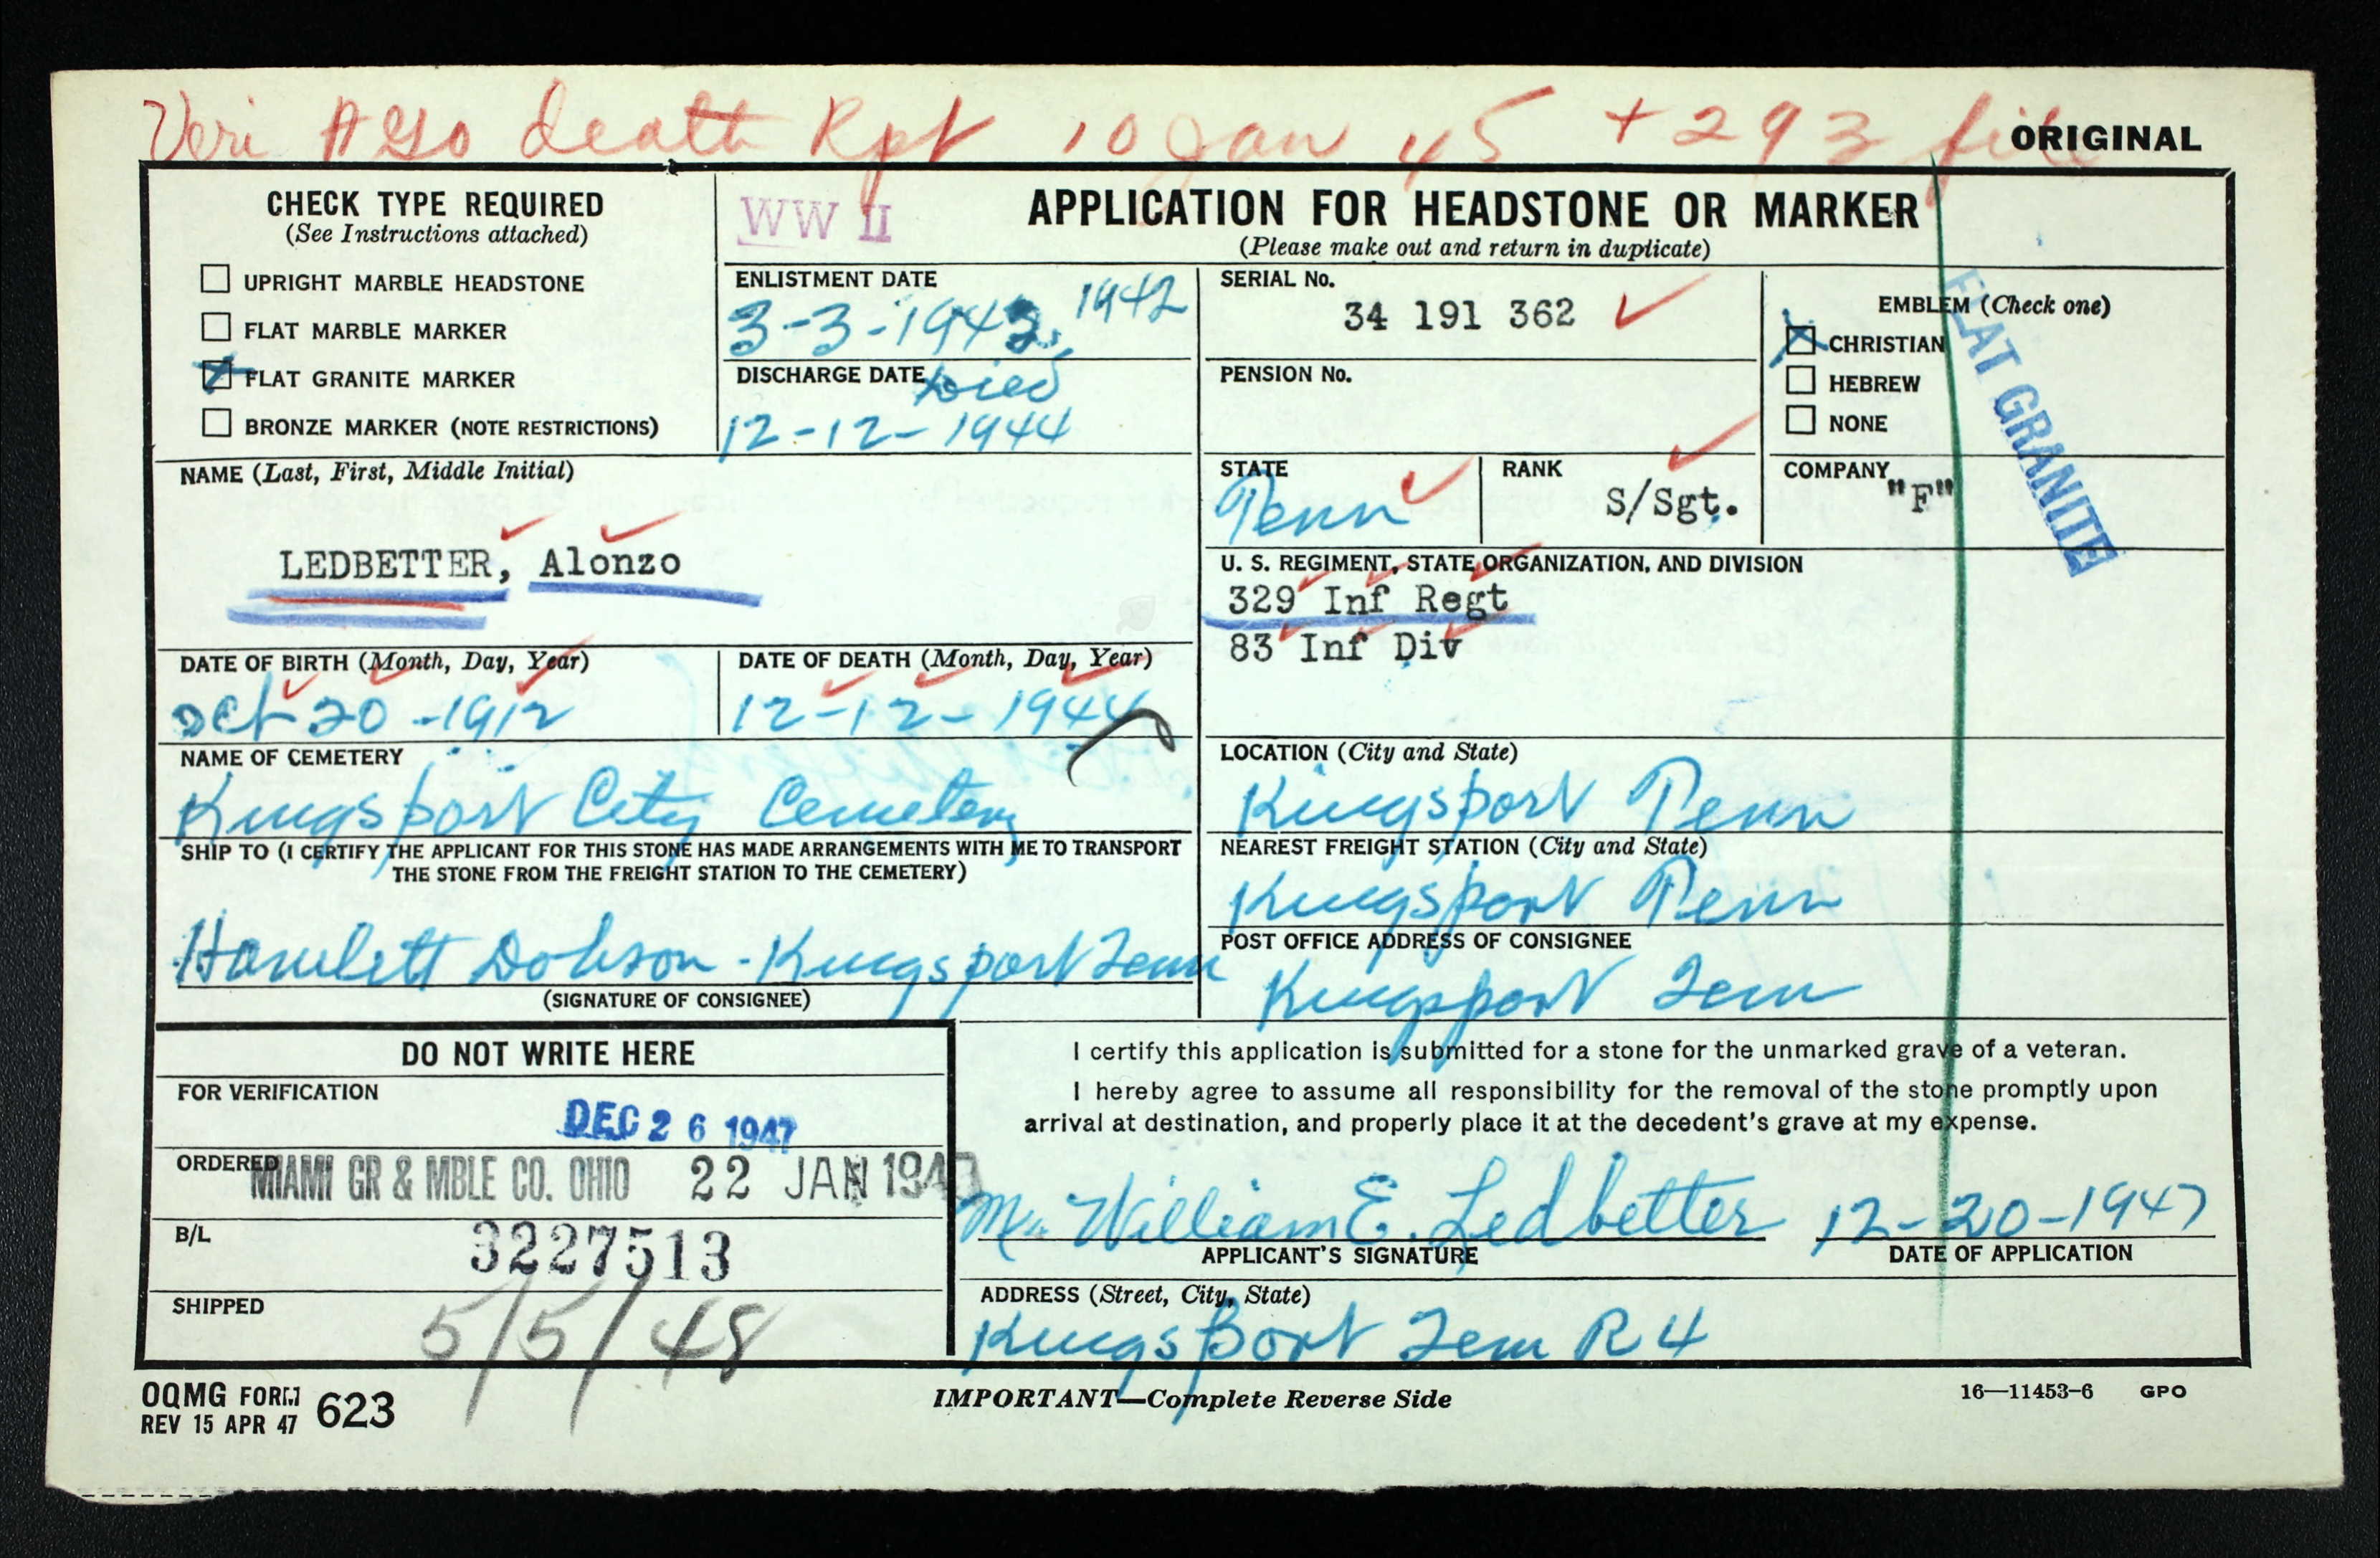 Veri AGO death Rpt 10 Jan 45 + 293 file
ORIGINAL
CHECK TYPE REQUIRED
(See Instructions attached)
UPRIGHT MARBLE HEADSTONE
FLAT MARBLE MARKER
X FLAT GRANITE MARKER
BRONZE MARKER (NOTE RESTRICTIONS)
WW II
APPLICATION FOR HEADSTONE OR MARKER
(Please make out and return in duplicate)
ENLISTMENT DATE
3-3-1942, 1942
DISCHARGE DATE Died
12-12-1944
SERIAL No.
34 191 362
PENSION No.
EMBLEM (Check one)
X CHRISTIAN
HEBREW
NONE
FLAT GRANITE
NAME (Last, First, Middle Initial)
LEDBETTER, Alonzo
STATE
Tenn
RANK
S/Sgt.
COMPANY
"F"
U. S. REGIMENT, STATE ORGANIZATION, AND DIVISION
329 Inf Regt
83 Inf Div
DATE OF BIRTH (Month, Day, Year)
Oct 20 -1912
DATE OF DEATH (Month, Day, Year)
12-12-1944
NAME OF CEMETERY
Kingsport City Cemetery
LOCATION (City and State)
Kingsport Tenn
SHIP TO (I CERTIFY THE APPLICANT FOR THIS STONE HAS MADE ARRANGEMENTS WITH ME TO TRANSPORT
THE STONE FROM THE FREIGHT STATION TO THE CEMETERY)
Hamlett Dobson - Kingsport Tenn
(SIGNATURE OF CONSIGNEE)
NEAREST FREIGHT STATION (City and State)
Kingsport Tenn
POST OFFICE ADDRESS OF CONSIGNEE
Kingsport Tenn
DO NOT WRITE HERE
FOR VERIFICATION
DEC 26 1947
ORDERED
MIAMI GR & MBLE CO. OHIO 22 JAN 194
B/L
3227513
SHIPPED
5/5/48
I certify this application is submitted for a stone for the unmarked grave of a veteran.
I hereby agree to assume all responsibility for the removal of the stone promptly upon
arrival at destination, and properly place it at the decedent's grave at my expense.
William E. Ledbetter 12-20-1947
APPLICANT'S SIGNATURE
DATE OF APPLICATION
ADDRESS (Street, City, State)
Kingsport Tenn R 4
OQMG FORM
REV 15 APR 47 623
IMPORTANT—Complete Reverse Side
16—11453-6 GPO